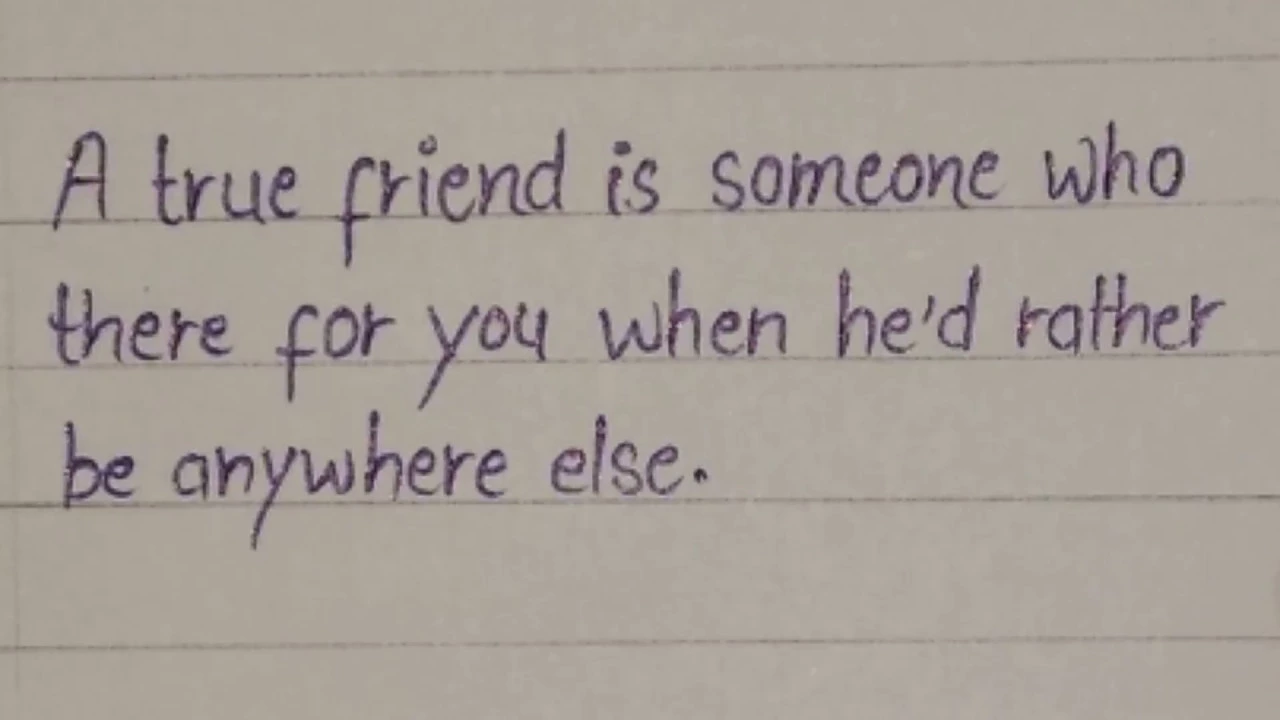 A true friend is someone who
there for you when he'd rather
be anywhere else.